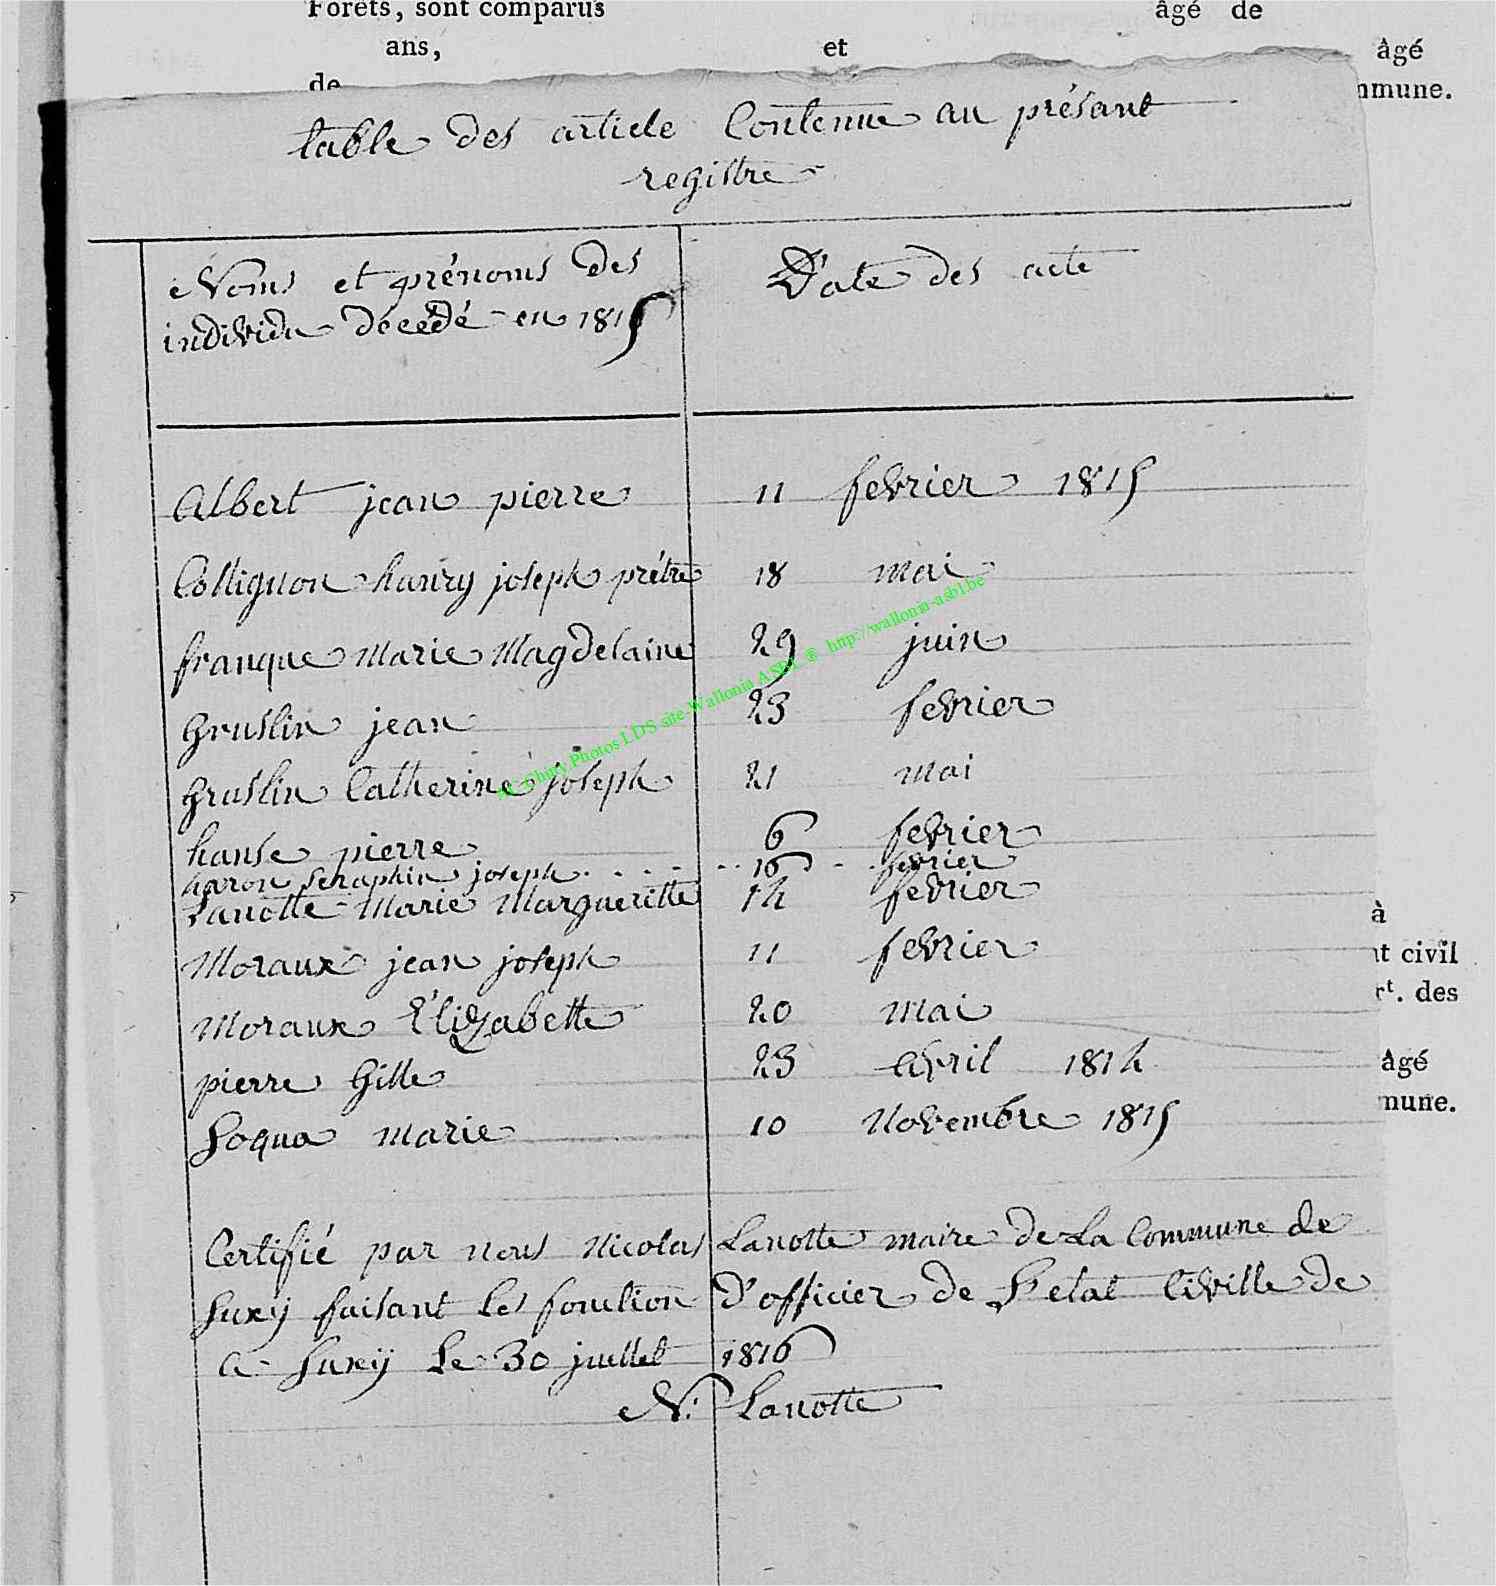 Forêts, sont comparus âgé de
ans, et âgé
de mmune.
table des article Contenue au présant
registre
Noms et prénoms des
individu décédé en 1815
Date des acte
Albert jean pierre 11 fevrier 1815
Collignon hanry joseph prétre 18 mai
franque Marie Magdelaine 29 juin
Gruslin jean 23 fevrier
Gruslin Catherine joseph 21 mai
hanse pierre 6 fevrier
haron seraphin joseph 16 fevrier
Lanotte Marie Margueritte 14 fevrier
Moraux jean joseph 11 fevrier
Moraux Élizabette 20 mai
pierre Gille 23 avril 1814
Soqua marie 10 Novembre 1815
Certifié par nous Nicolas Lanotte maire de La Commune de
Suxÿ faisant les fonction d'officier de L'etat Civille de
a Suxÿ Le 30 juillet 1816
N: Lanotte
Photos LDS site-Wallonia ASBL ® http://wallonia-asbl.be
à
t civil
rt. des
âgé
mune.